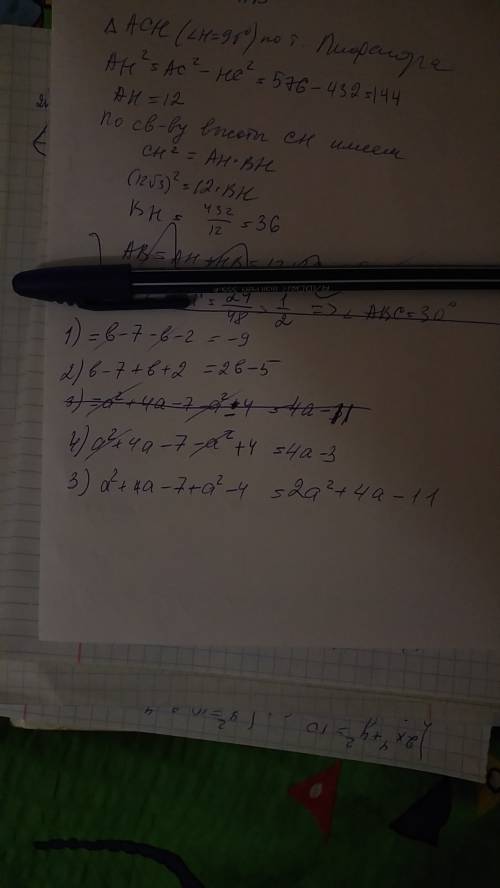 Δ ACH (∠H=90°) по т. Пифагора
AH² = AC² − HC² = 576 − 432 = 144
AH = 12
По св-ву высоты CH имеем
CH² = AH · BH
(12√3)² = 12 · BH
BH = 432/12 = 36
AB = AH + HB =
= 24/48 = 1/2 => ∠ ABC = 30°
1) = в − 7 − в − 2 = −9
2) в − 7 + в + 2 = 2в − 5
3) = a² + 4a − 7 − a² − 4 = 4a − 11
4) a² + 4a − 7 − a² + 4 = 4a − 3
3) a² + 4a − 7 + a² − 4 = 2a² + 4a − 11